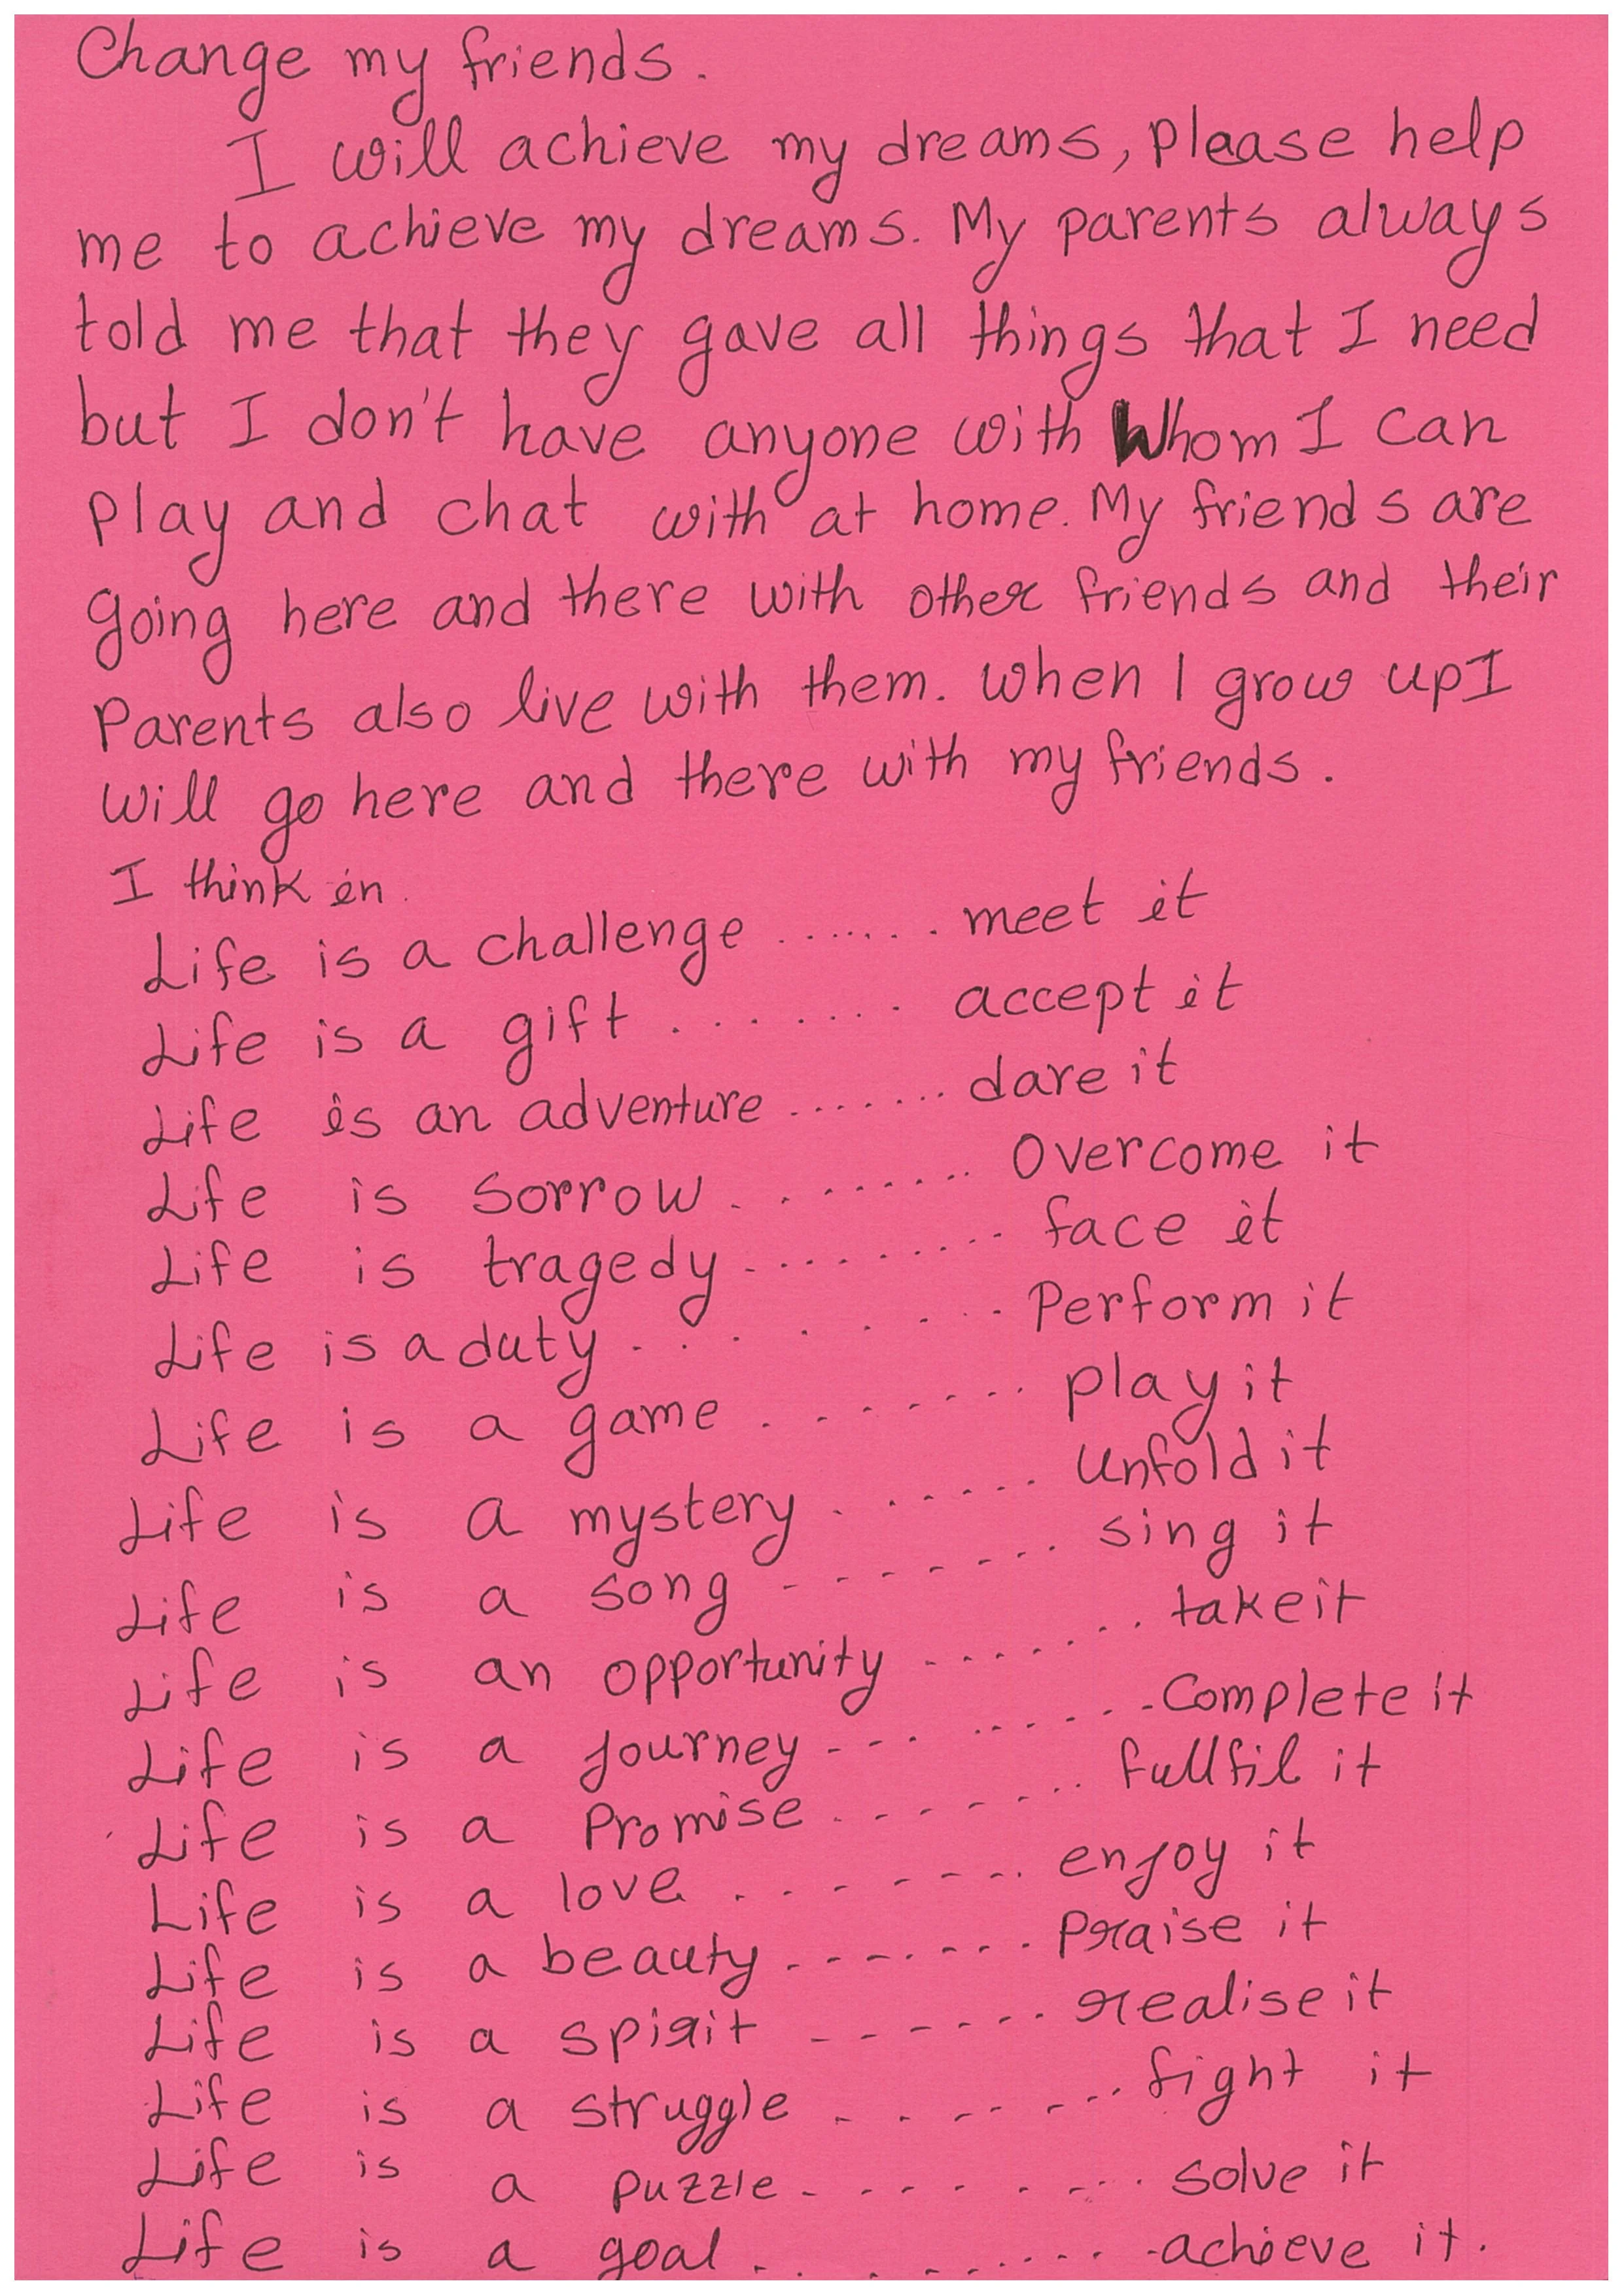 Change my friends.
I will achieve my dreams, please help
me to achieve my dreams. My parents always
told me that they gave all things that I need
but I don't have anyone with Whom I can
play and chat with at home. My friends are
going here and there with other friends and their
Parents also live with them. When I grow up I
will go here and there with my friends.
I think in.
Life is a challenge ....... meet it
Life is a gift ........ accept it
Life is an adventure ....... dare it
Life is sorrow ......... Overcome it
Life is tragedy ......... face it
Life is a duty ........ Perform it
Life is a game ....... play it
Life is a mystery ....... unfold it
Life is a song ....... sing it
Life is an opportunity ........ take it
Life is a journey ......... Complete it
Life is a Promise ........ fullfil it
Life is a love ........ enjoy it
Life is a beauty ........ Praise it
Life is a spirit ....... realise it
Life is a struggle ........ fight it
Life is a puzzle ........ solve it
Life is a goal ......... achieve it.